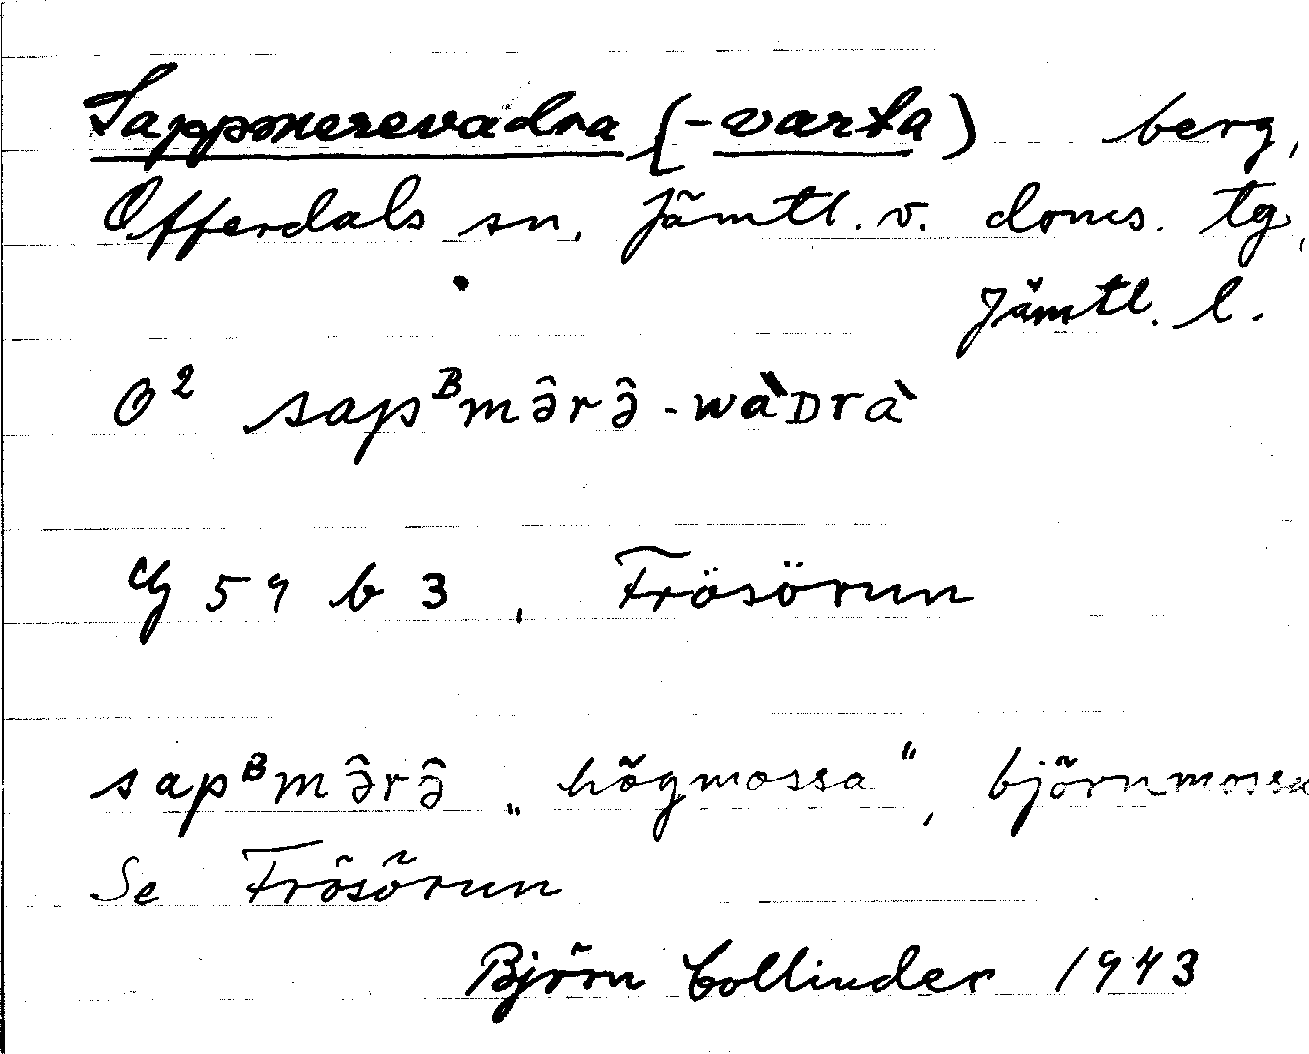 Sappmerevadna (-varta) berg,
Offerdals sn, Jämtl. v. doms. tg,
Jämtl. l.
O² sapᴮmə̂rə̂-wàᴅrà
G 54 b 3, Frösörun
sapᴮmə̂rə̂ „högmossa", björnmossa
Se Frösörun
Björn Collinder 1943